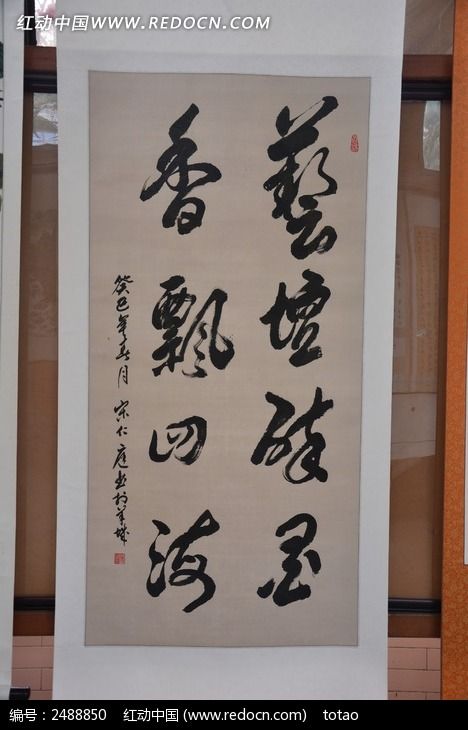 红动中国 WWW.REDOCN.COM
藝壇醉墨
香飄四海
癸巳年春月 宋仁庭書於羊城
编号：2488850 红动中国 (www.redocn.com) totao